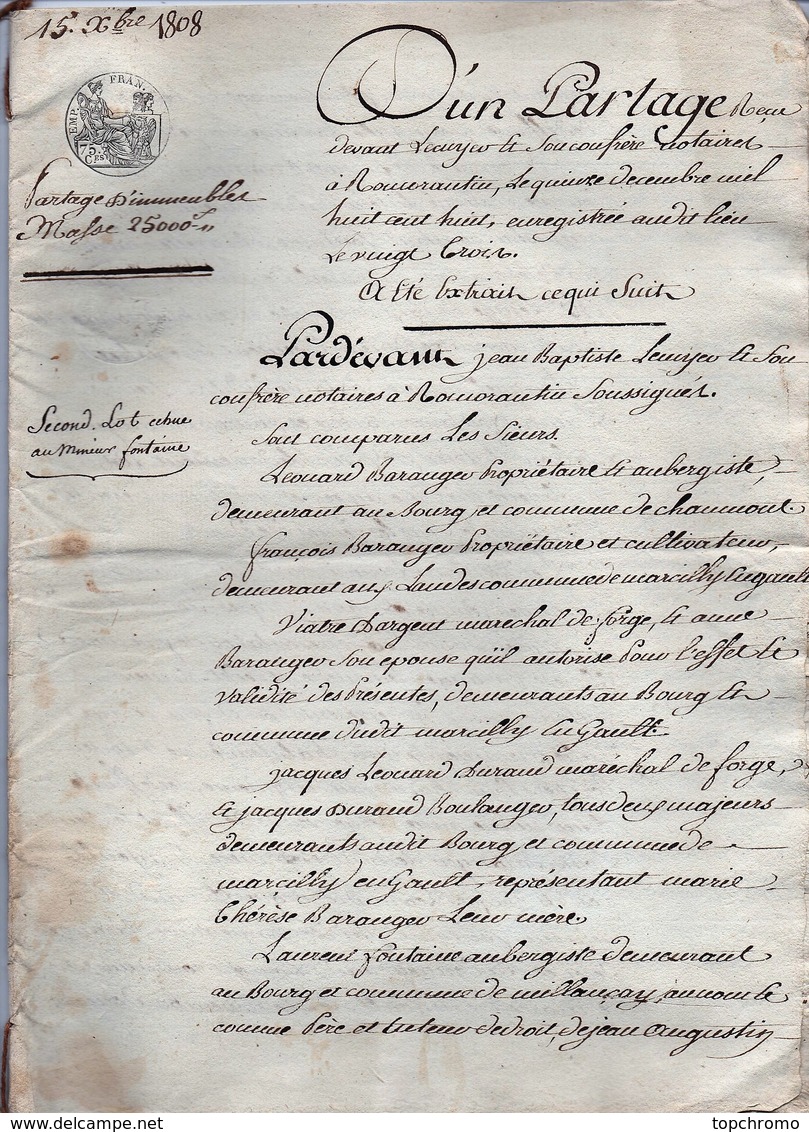 15. Xbre 1808
EMP. FRAN.
75.
Ces
Partage d'immeubles
Masse 25000 f "
D'un Partage Reçu
devant Leuyer & Son confrère Notaires
à Romorantin, Le quinze decembre mil
huit cent huit, enregistrée audit lieu
Le vingt trois.
A Eté Extrait ce qui Suit
Pardevant jean Baptiste Leuyer & Son
confrère notaires à Romorantin Soussignés.
Second. Lot echue
au Mineur fontaine
Sont comparus Les Sieurs.
Léonard Baranger Propriétaire & aubergiste,
demeurant au Bourg et commune de chaumont.
françois Baranger Propriétaire et cultivateur,
demeurant aux Landes commune de marcilly En gault
Viatre Dargent marechal de forge, & anne
Baranger Son epouse qu'il autorise Pour l'effet &
validité des Présentes, demeurants au Bourg &
commune dudit marcilly En Gault.
jacques Léonard Durand maréchal de forge,
& jacques Durand Boulanger, tous deux majeurs
demeurants audit Bourg et commune de
marcilly en Gault, représentant marie
thérèse Baranger Leur mère.
Laurent fontaine aubergiste demeurant
au Bourg et commune de millançay, au nom &
comme Père et tuteur de droit, de jean Augustin
topchromo